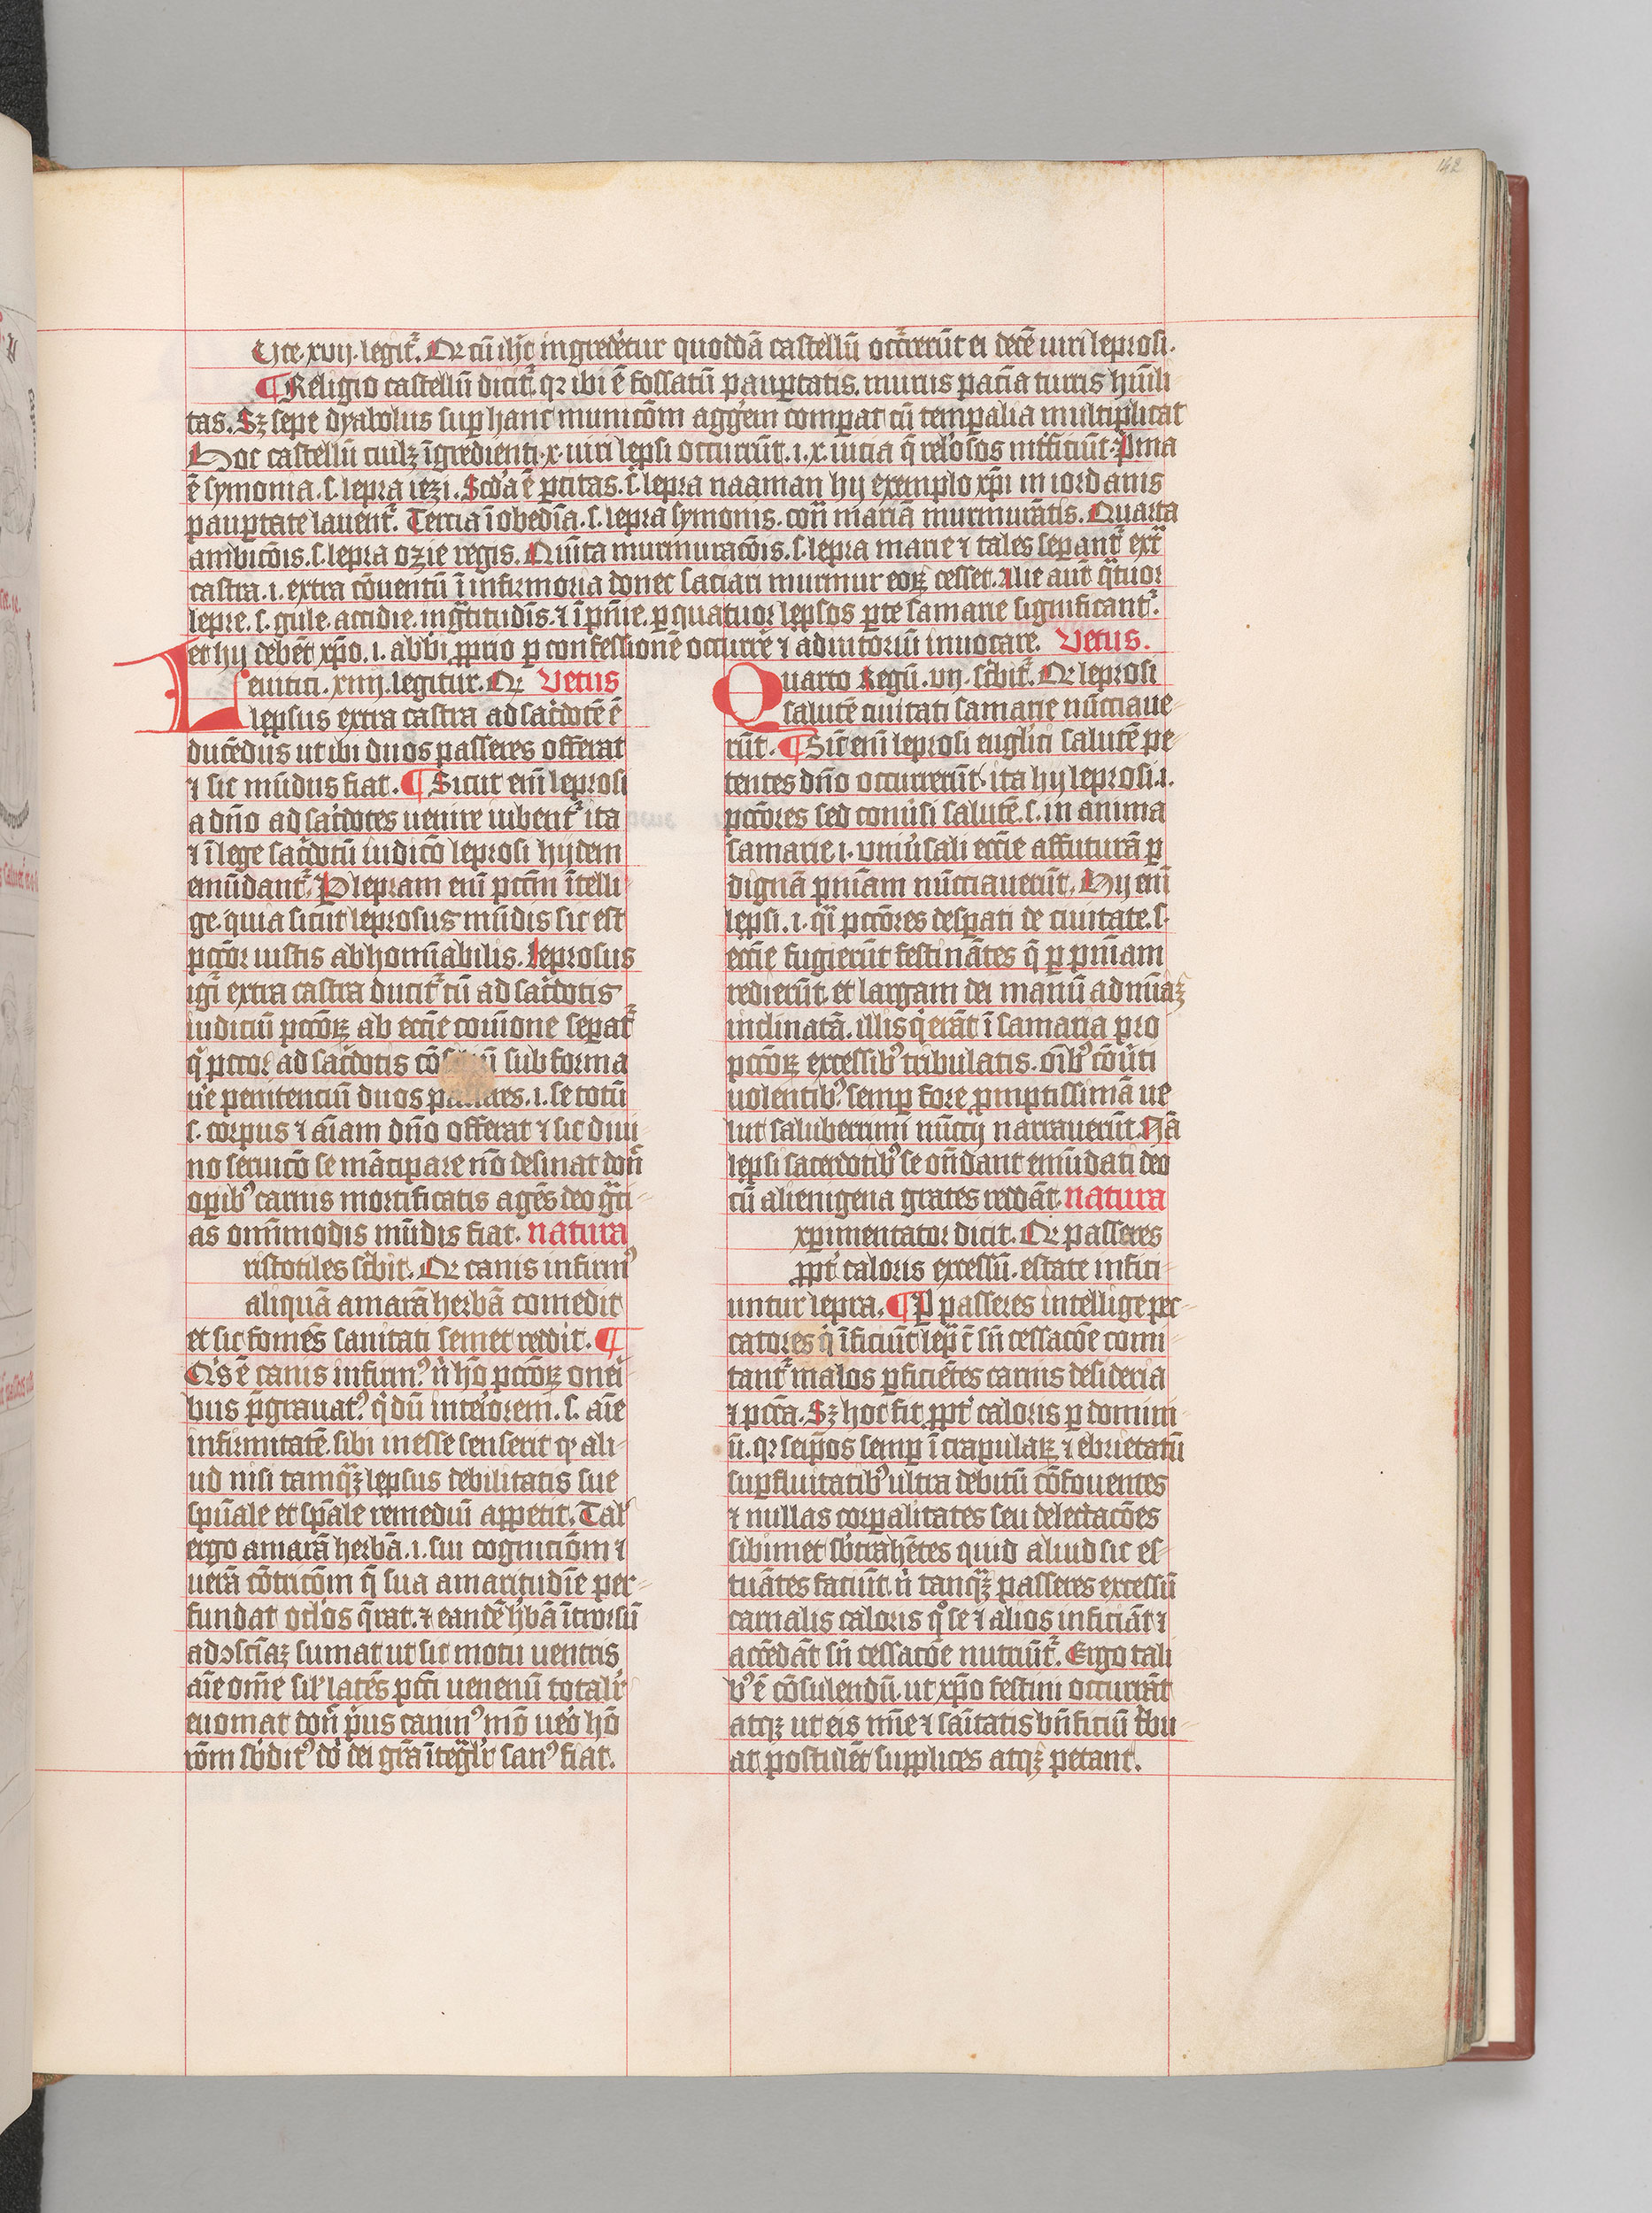 142
Uce .xvij. legit᷑. Qꝛ cū ih̄c ingredēt̓ur quoddā castellū occr̄rerūt ei decē uiri leprosi.
¶ Religio castellū dicit᷑. qꝛ ibi ē fossatū paup̱tatis. murus paciā turris hūili
tas. Sꝫ sepe dyabolus sup̱ hanc municōm agg̓em comp̱at cū temp̱alia multiplicat
Hoc castellū cuilꝫ īgredienti .x. uiri lep̱si occurrūt .i. x. uicia q̄ rel̓osos inficiūt. P̓ma
ē symonia .s. lepra iezi. Scd̓a ē p̱c̄itas .s. lepra naaman hij exemplo xp̄i in iordanis
paup̱tate lauent᷑. Tercia īobedīa .s. lepra symonis. con̄ mariā murmurātis. Quarta
ambicōis .s. lepra ozie regis. Quīta murmuracōis .s. lepra marie ⁊ tales sep̱ant᷑ ext᷑
castra .i. extra cōuentū ī infirmoria donec saciari murmur eoꝝ cesset. Alie aut̄ q̄tuor
lepre .s. gule. accidie. ing̓titudīs. ⁊ īp̄nīe. p̱ quatuor lep̱sos p̱te samarie significant᷑.
et hij debēt xp̄o .i. abb̄i p̱prio p̱ confessionē occurrē ⁊ adiutoriū inuocare. Vetus.
Leuitici .xiiij. legitur. Qꝛ Vetus
lep̱sus extra castra ad sac̓dotē ē
ducēdus ut ibi duos passeres offerat
⁊ sic mūdus fiat. ¶ Sicut eni᷒ leprosi
a dn̄o ad sac̓dotes uenire iubent᷑ ita
⁊ ī lege sac̓dotū iudicō leprosi hijdem
emūdant᷑. P̱ lepram eni᷒ pc̄cm ītelli
ge. quia sicut leprosus mūdis sic est
pc̄cor iustis abhomīabilis. Leprosus
igr̓ extra castra ducit᷑ cū ad sac̓dotis
iudiciū pc̄cōꝝ ab ecc̄ie cōmīone sep̱at᷑
q̓ pc̄cor ad sac̓dotis sub forma
ue̓ penitenciū duos .i. se totū
.s. corpus ⁊ aīam dn̄o offerat ⁊ sic diui
no seruicō se mācipare nō desinat don̄
op̱ib᷒ carnis mortificatis agēs deo gr̄ci
as omīmodis mūdis fiat. natura
ristotiles sc̓bit. Qꝛ canis infirm᷒
aliquā amarā herbā comedit
et sic fomēs sanitati semet reddit. ¶
Q̓s ē canis infirm᷒ n̓ hō pc̄cōꝝ oneri
bus p̄grauat᷒. q̓ dū inte̓iorem .s. aīe
infirmitatē sibi inesse senserit q̓ ali
ud nisi tamq̄ꝫ lep̱sus debilitatis sue
sp̄uale et sp̄ale remediū appetit. Tal̓
ergo amarā herbā .i. sui cognitiōm ⁊
uerā cōtricōm q̄ sua amaritudīe per
fundat ocl̓os q̄rat. ⁊ eandē h̓bā ītrorsū
ad ꝯsciāꝫ sumat ut sic motu uentris
aīe om̄e sil̓ latēs pc̄ci uenenū totalit̓
euomat don̄ p̓us canin᷒ mō ue̓o hō
rōm sb̓dit᷒ do̓ dei gr̄a īteg̓lit̓ san᷒ fiat.
Quarto Regū .vij. sc̓bit᷑. Qꝛ leprosi
salutē ciuitati samarie nūcciaue
rūt. ¶ Sic eni᷒ leprosi euglīci salutē pe
tentes dn̄o occurrerūt. ita hij leprosi .i.
pc̄cōres sed conūsi salutē .s. in anima
samarie .i. vniūsali ecc̄ie affuturā p̱
dignā pn̄iam nūcciauerūt. Hij eni᷒
lep̱si .i. qi᷒ pc̄cōres desp̱ati de ciuitate .s.
ecc̄ie fugierūt festinātes q̄ p̱ pn̄iam
redierūt. et largam dei manū ad mīaꝫ
inclinatā. illis q̓ erāt ī samaria pro
pc̄cōꝝ excessib᷒ tribulatis. oīb᷒ cōūti
uolentib᷒ semp̱ fore p̱mptissimā ue
lut saluberrimi nūccij narrauerūt. Nā
lep̱si sacerdotib᷒ se on̄dant emūdati deo
cū alienigena grates reddāt. natura
xp̱imentator dicit. Qꝛ passeres
p̱pt̓ caloris excessū. estate infici
untur lepra. ¶ P̱ passeres intellige pec
catores q̓ īficiūt lep̱ ⁊ sn̄ cessacōe comi
tant᷑ malos p̱ficiētes carnis desideria
⁊ pc̄ca. Sꝫ hoc fit p̱pt̓ caloris p̱ domini
ū. qꝛ seip̄os semp̱ ī crapulaꝝ ⁊ ebrietatū
sup̱fluitatib᷒ ultra debitū cōfouentes
⁊ nullas corp̱alitates seu delectacōes
sibimet sb̓trahētes quid aliud sic es
tuātes faciūt. n̓ tanq̄ꝫ passeres excessū
carnalis caloris q̓ se ⁊ alios inficiāt ⁊
accēdāt sn̄ cessacōe nutriūt᷑. Ergo tali
b᷒ ē cōsulendū. ut xp̄o festini occurrāt
atqꝫ ut eis mīe ⁊ sāitatis bn̄ficiū t̓bu
at postulēt supplices atqꝫ petant.